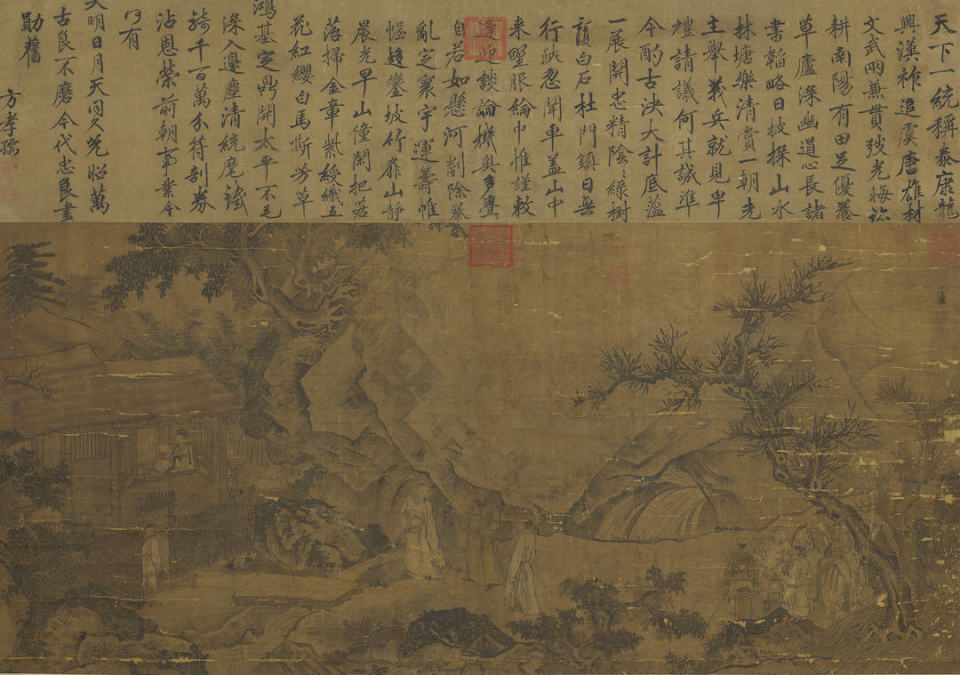 天下一統稱泰康龍
興漢祚追虞唐雄材
文武兩兼貫弢光晦跡
耕南陽有田足優養
草廬深幽道心長諸
書韜略日披探山水
林塘樂清賞一朝先
主舉義兵就見卑
禮請議何其誠準
今酌古決大計底蘊
一展開忠精陰陰綠樹
覆白石杜門鎮日無
行跡忽聞車蓋山中
來墅服綸巾惟謹敕
逢迎談論機奥多亹
自若如懸河削除暴
亂定寰宇運籌帷
幄趨鑾坡竹扉山靜
晨光早山僮闢把蒼
落掃金章紫綬纖五
花紅纓白馬斯芳草
鴻基定鼎開太平不毛
深入邊塵清統麾
騎千百萬分符剖券
沾恩榮前朝事業今
何有
大明日月天同久光昭萬
古良不磨今代忠良畫
勛舊
方孝孺